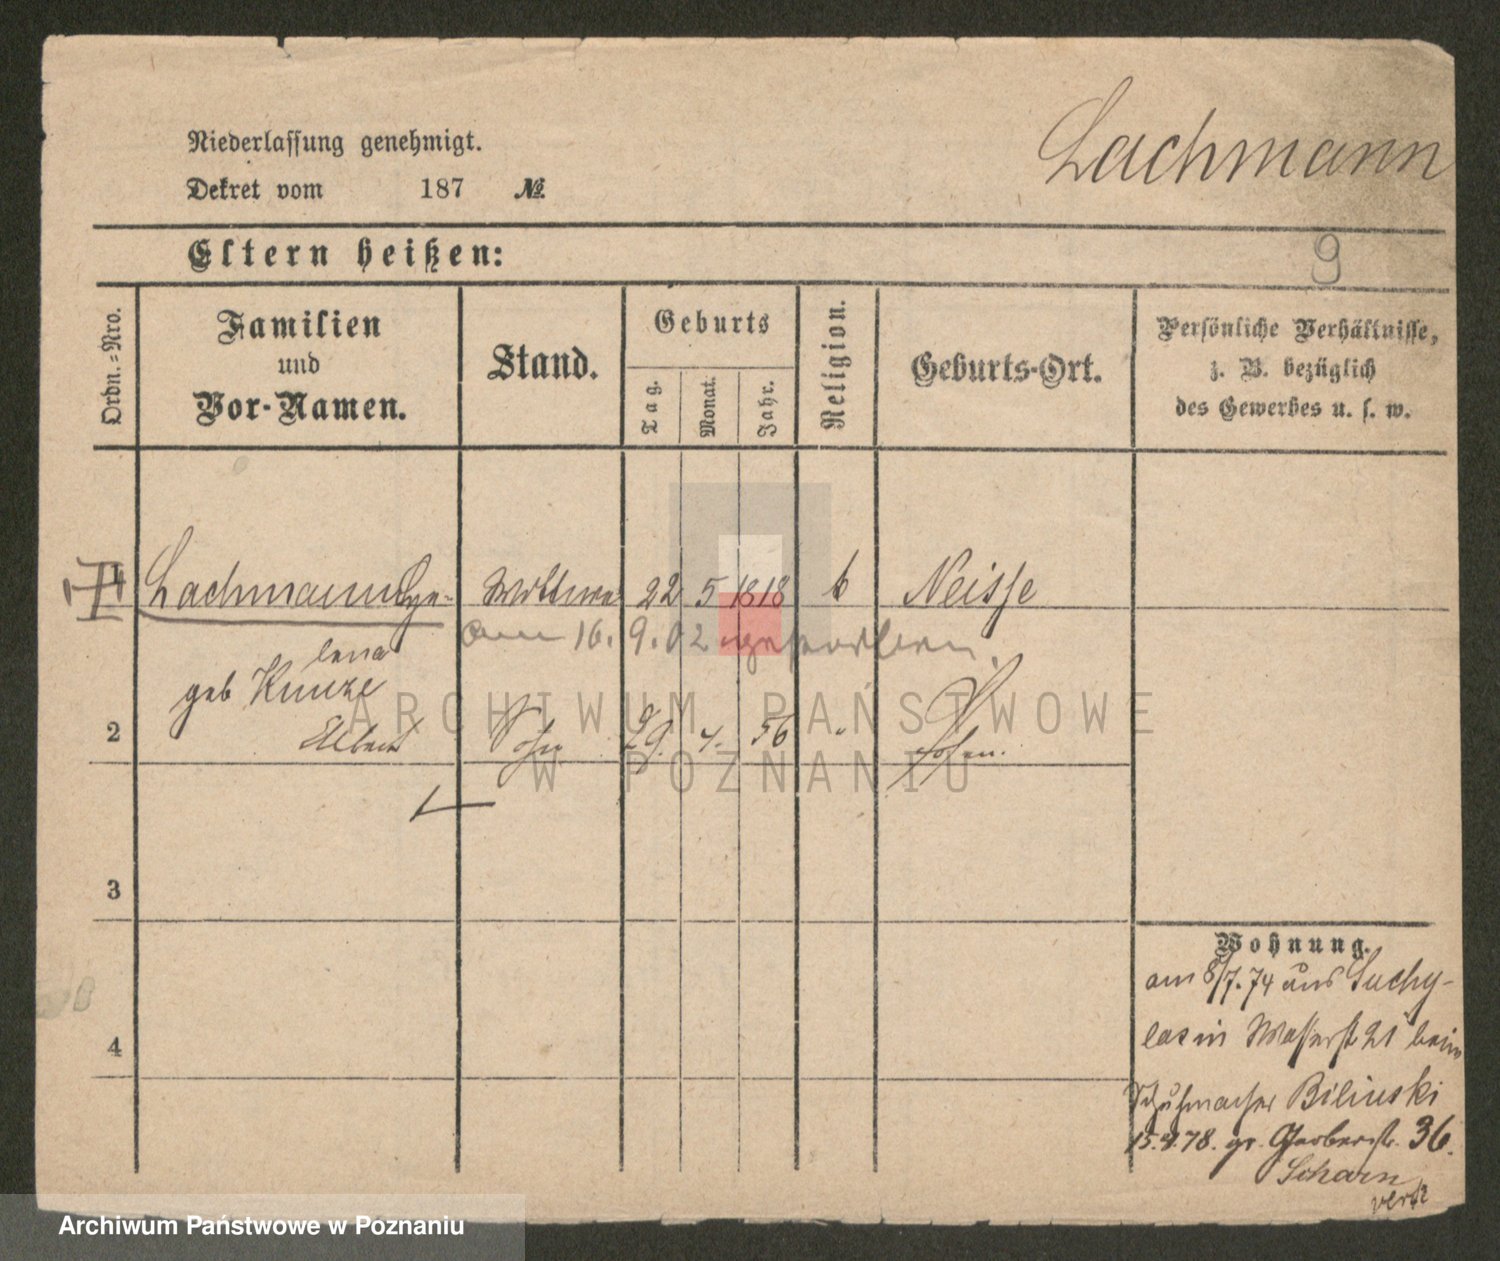 Lachmann
Niederlassung genehmigt.
Dekret vom 187 №
9
Eltern heißen:
Ordn.=Nro.
Familien
und
Vor-Namen.
Stand.
Geburts
Tag.
Monat.
Jahr.
Religion.
Geburts-Ort.
Persönliche Verhältnisse,
z. B. bezüglich
des Gewerbes u. s. w.
1 Lachmann Wittwe 22 5 1818 Neisse
am 16. 9. 02 gestorben.
lena
geb Kunze
2 Albert Sohn 29. 4. 56 " Posen.
3
4
Wohnung.
am 8/7. 74 aus Suchy-
las in Wasserstr 21 beim
Schuhmacher Bilinski
15.4.78. gr. Gerberstr. 36.
Scharn
ARCHIWUM PAŃSTWOWE
W POZNANIU
Archiwum Państwowe w Poznaniu